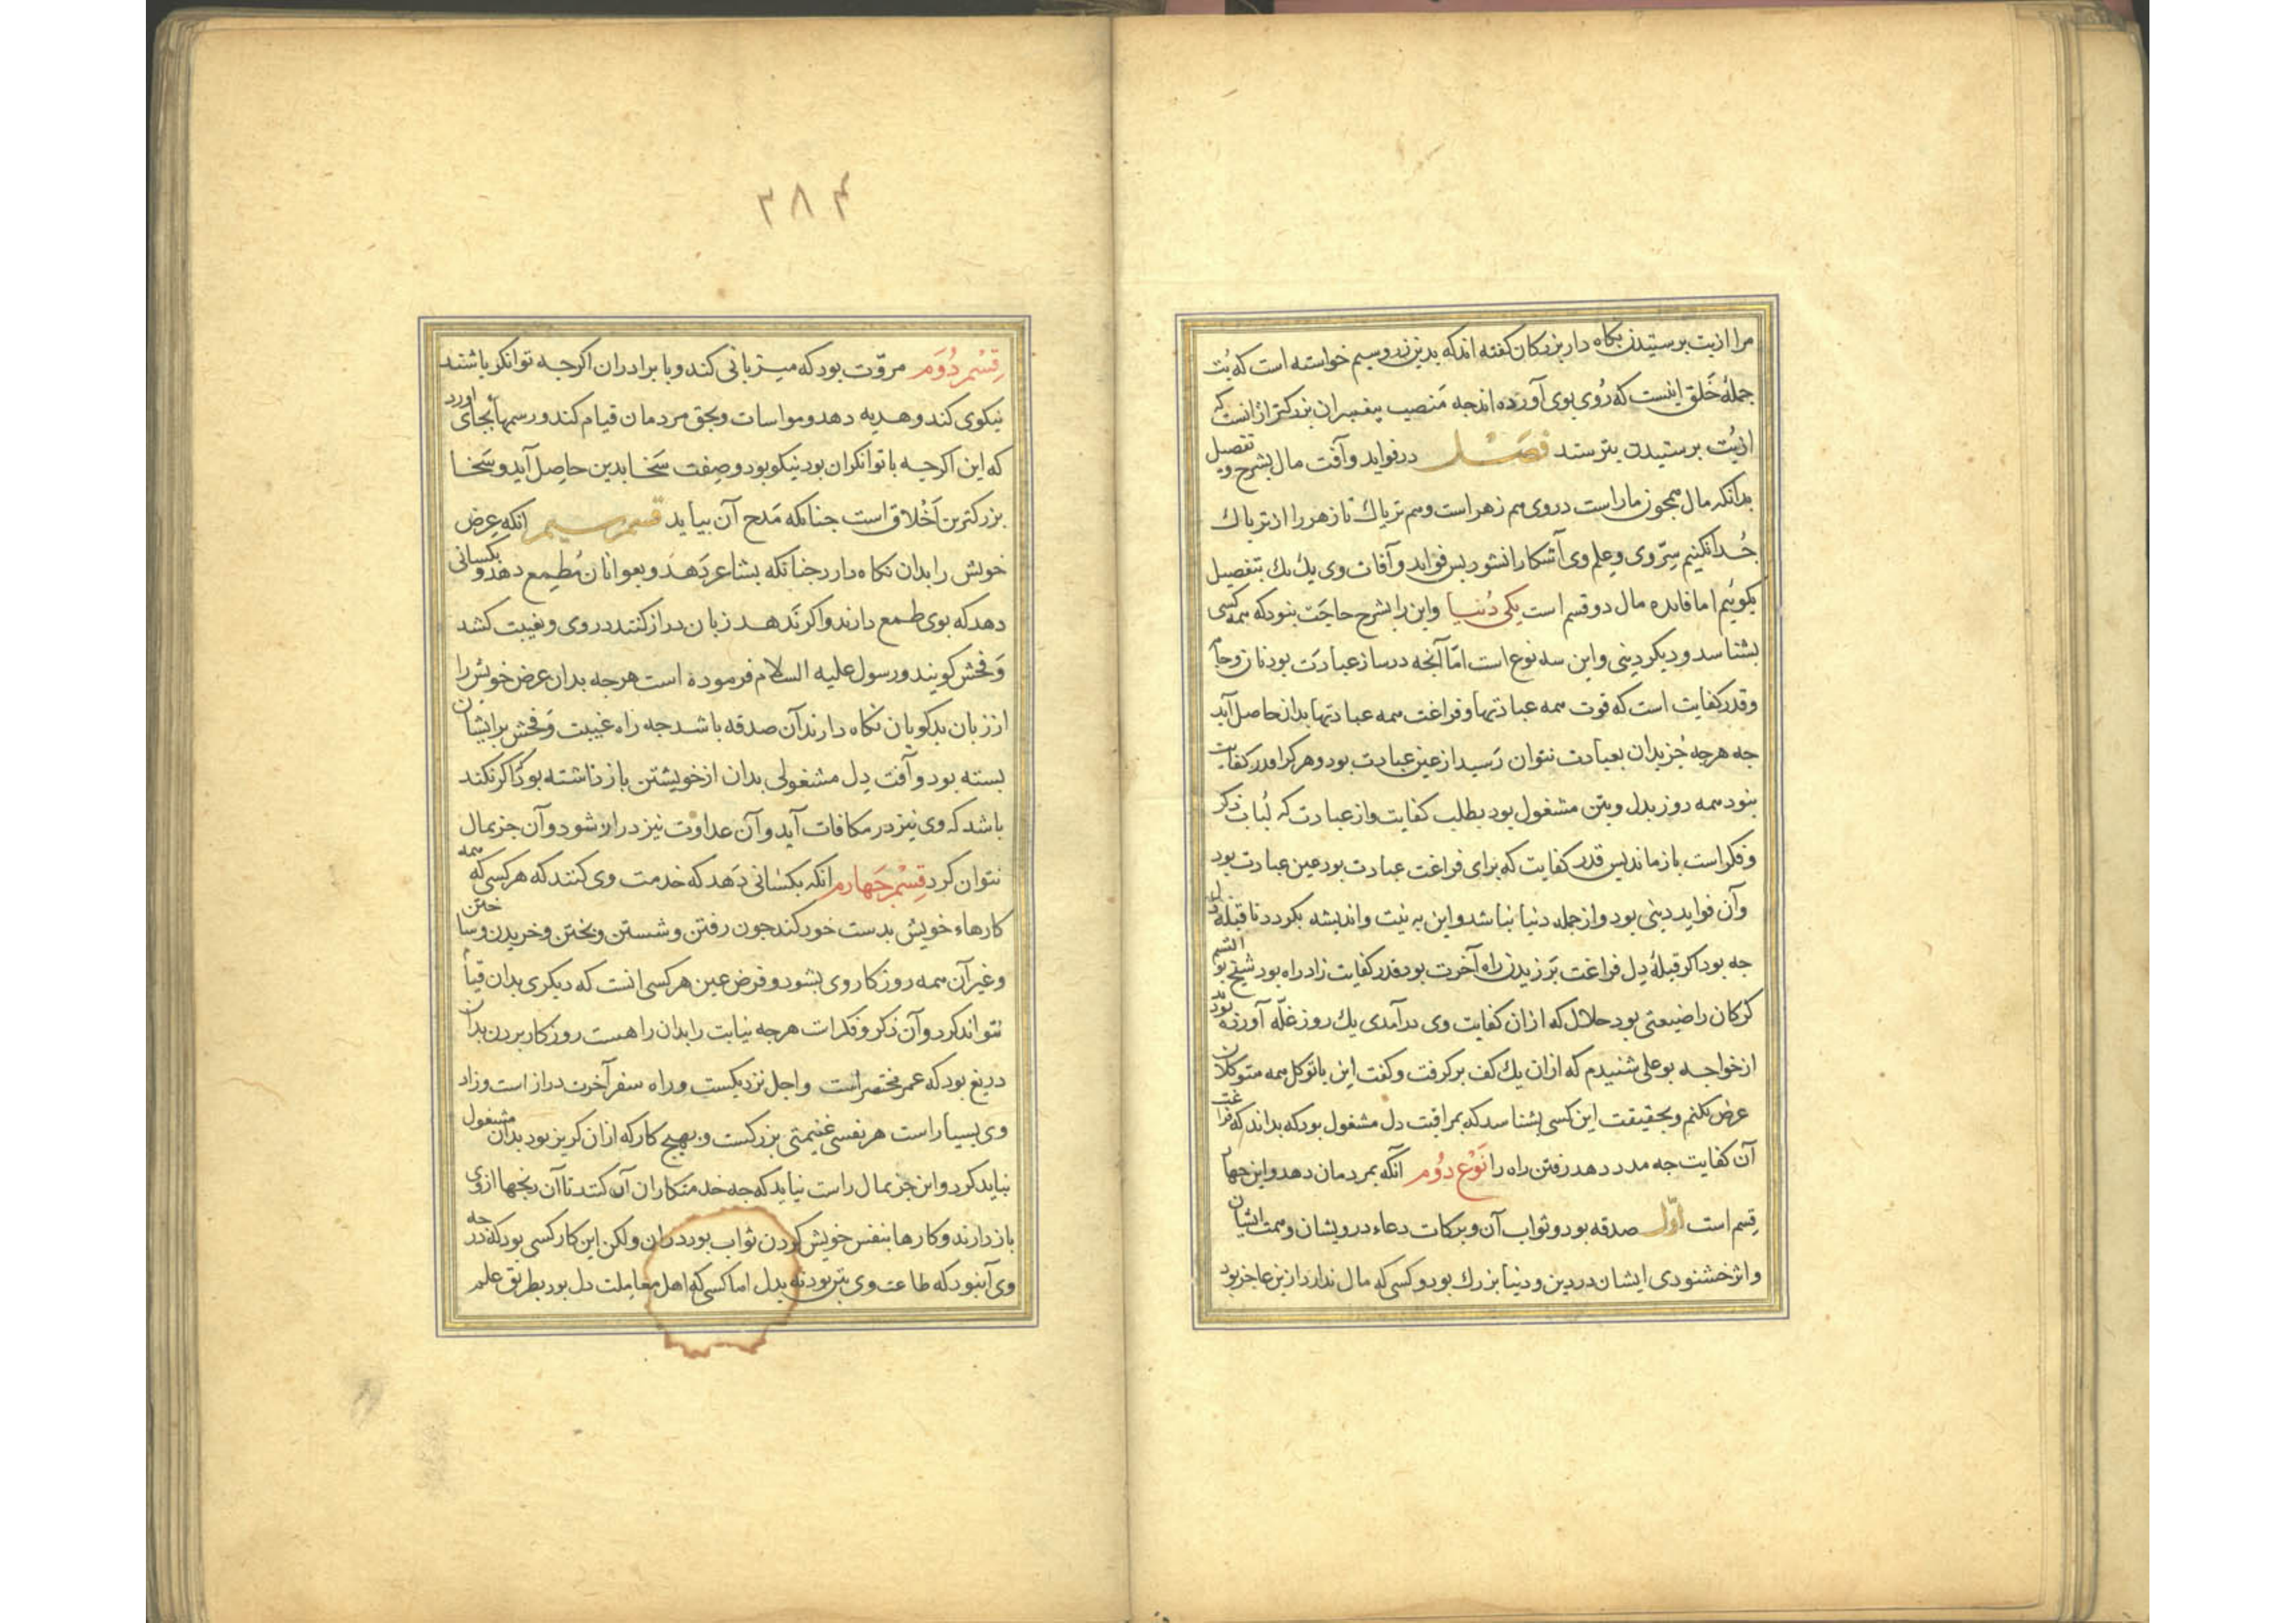 مرا از بت برستیدن نکاه دار بزرکان کفته اند که بدین زر و سیم خواسته است که بُت
جملهٔ خَلق اینست که رُوی بوی آورده اند جه مَنصِب پیغمبران بزرکتر از انست که
از بُت برستیدن بترسند فصَــْـل در فواید و آفت مال بشرح و تفصیل
بدانکه مال همجون ماراست در وی هم زهر است و هم تریاك تا زهر را از تریاك
جُدا نکنیم سِرّ وی و علم وی آشکارا نشود بس فواید و آفات وی یك یك بتفصیل
بکوئیم اما فایده مال دو قسم است یکی دُنیـا و این را بشرح حاجَت نبود که همه کسی
بشناسد و دیکر دینی و این سه نوع است امّا آنجه در ساز عبادَت بود نان و جامه
و قدر کفایت است که قوت همه عبادتها و فراغت همه عبادتها بدان حاصل آید
جه هرجه جُز بدان بعبادت نتوان رَسید از عین عبادت بود و هر کرا قدر کفایت
نبود همه روز بدل و بتن مشغول بود بطلب کفایت و از عبادت که لُباب ذکر
و فکر است باز ماند بس قدر کفایت که برای فراغت عبادت بود عین عبادت بود
و آن فواید دینی بود و از جمله دنیا نباشد و این به نیت و اندیشه بکردد تا قبلهٔ دل
جه بود اکر قبلهٔ دِل فراغت بَرزیدن راه آخرت بود قدر کفایت زاد راه بود شیخ بوالقسم
کرکان را ضیعتی بود حلال که از ان کفایت وی درآمدی یك روز غلّه آورده بودند
از خواجه بوعلی شنیدم که از ان یك کف برکرفت و کفت این با توکل همه متوکلان
عرض نکنم و بحقیقت این کسی بشناسد که بمراقبت دل مشغول بود که بداند که فراغت
آن کفایت جه مدد دهد رفتن راه را نَوْع دُوُم آنکه بمردمان دهد و این جهار
قِسم است اوّل صدقه بود و ثواب آن و برکات دعاء درویشان و همت ایشان
و اثر خشنودی ایشان در دین و دنیا بزرك بود و کسی که مال ندارد ازین عاجز بود
۳۸۴
قِسْم دُوَم مروّت بود که میزبانی کند و با برادران اکرجه توانکر باشند
نیکوی کند و هدیه دهد و مواسات و بحق مردمان قیام کند و رسمها بجای آورد
که این اکرجه با توانکران بود نیکو بود و صِفت سَخا بدین حاصِل آید و سَخا
بزرکترین اَخْلاق است جنانکه مَدح آن بیاید قسم سیم انکه عِرض
خویش را بدان نکاه دارد جنانکه بشاعر دَهَد و بعوانان مُطمِع دهد و بکسانی
دهد که بوی طمع دارند و اکر نَدهـد زبان دراز کنند در وی و غیبت کنند
وَ فحش کویند و رسول علیه السلام فرموده است هرجه بدان عرض خویش را
از زبان بدکویان نکاه دارند آن صدقه باشد جه راه غیبت وَ فحش بر ایشان
بسته بود و آفت دِل مشغولی بدان از خویشتن باز داشته بود و اکر نکند
باشد که وی نیز در مکافات آید و آن عداوت نیز دراز شود و آن جز بمال
نتوان کرد قِسْمِ جَهارم انکه بکسانی دَهد که خدمت وی کنند که هر کسی که همه
کارهاء خویش بدست خود کند جون رفتن و شستن و بختن و خریدن و ساختن
و غیر آن همه روزکار وی بشود و فرض عین هر کسی انست که دیکری بدان قیام
نتواند کرد و آن ذکر و فکر است هرجه نیابت را بدان راهست روزکار بردن بدان
دریغ بود که عمر مختصر است و اجل نزدیکست و راه سفر آخرت دراز است و زاد
وی بسیار است هر نفسی غنیمتی بزرکست و بهیج کار که ازان کریز بود بدان مشغول
نباید کرد و این جز بمال راست نیاید که جه خدمتکاران آن کنند تا آن رنجها از وی
باز دارند و کارها بنفس خویش کردن ثواب بود در ان ولکن این کار کسی بود که درجه
وی آن بود که طاعت وی بتن بود نه بدل اما کسی که اهل معاملت دل بود بطریق علم